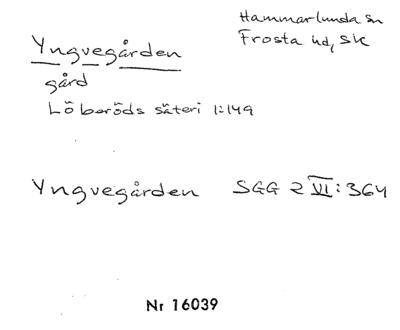 Hammarlunda sn
Frosta hd, Sk
Yngvegården
gård
Löberöds säteri 1:149
Yngvegården SGG 2 VI:364
Nr 16039